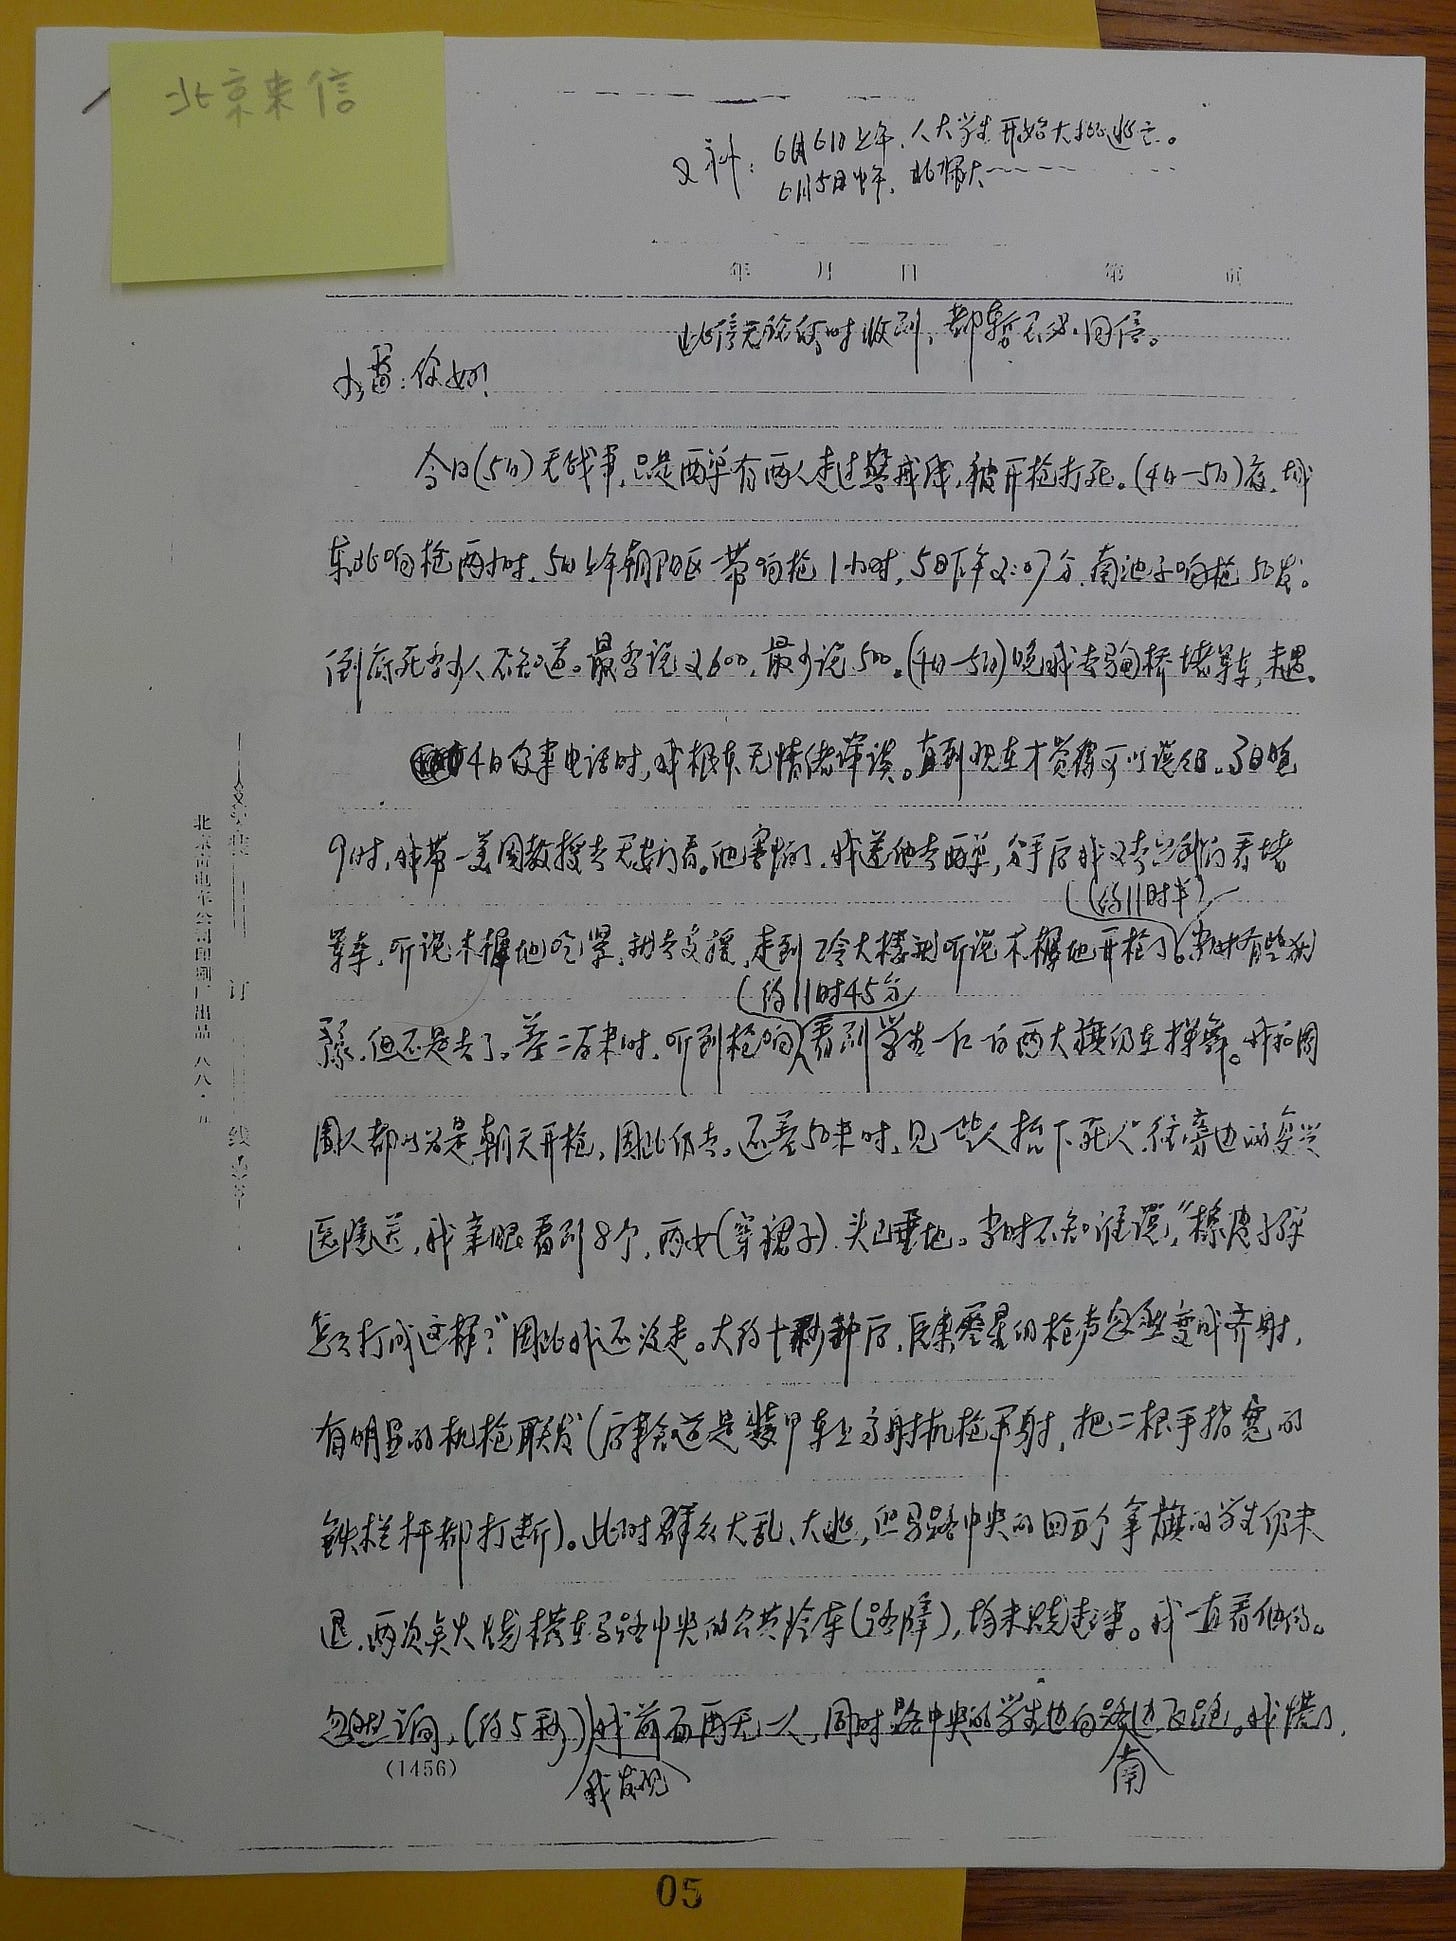 北京来信
又补：6月6日上午，人大学生开始大批逃亡。
6月5日中午，北师大
年 月 日 第 页
此信无论何时收到，都暂不必回信。
小雷：你好！
今日(5日)无战事，只是西单有两人走过警戒线，被开枪打死。(4日—5日)夜，城
东北响枪两小时，5日上午朝阳区一带响枪1小时，5日下午2:07分，南池子响枪50发。
到底死多少人不知道。最多说2600，最少说500。(4日—5日)晚我去 桥堵军车，未遇。
4日你来电话时，我根本无情绪详谈。直到现在才觉得可以谈谈。3日晚
9时，我带一美国教授去天安门看。他害怕了，我送他去西单，分手后我又去 看堵
军车，听说木樨地吃紧，就去支援，走到工会大楼就听说木樨地开枪了。当时有些犹
(约11时半)
豫，但还是去了。差二百米时，听到枪响，看到学生一红一白两大旗仍在挥舞。我和周
(约11时45分)
围人都以为是朝天开枪，因此仍去。还差50米时，见一些人抬下死人，往旁边的复兴
医院送，我亲眼看到8个，两女(穿裙子)，头已垂地。当时不知谁说，“橡皮子弹
怎么打成这样？”因此我还没走。大约十秒钟后，原来零星的枪声忽然变成齐射，
有明显的机枪联发(后来知道是装甲车上高射机枪平射，把二根手指宽的
铁栏杆都打断)。此时群众大乱、大逃，但马路中央的四五个拿旗的学生仍未
退，两次点火烧横在马路中央的公共汽车(路障)，均未烧起来。我一直看他们。
忽然间，(约5秒)我前面再无一人，同时路中央的学生也向路边飞跑。我慌了，
我发现
南
(1456)
装
订
线
北京市电车公司印刷厂出品 八八·五
05